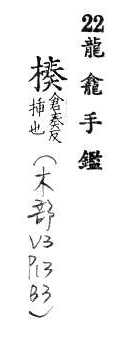 22龍龕手鑑
榛倉奏反
揷也
(木部V3P13B3)